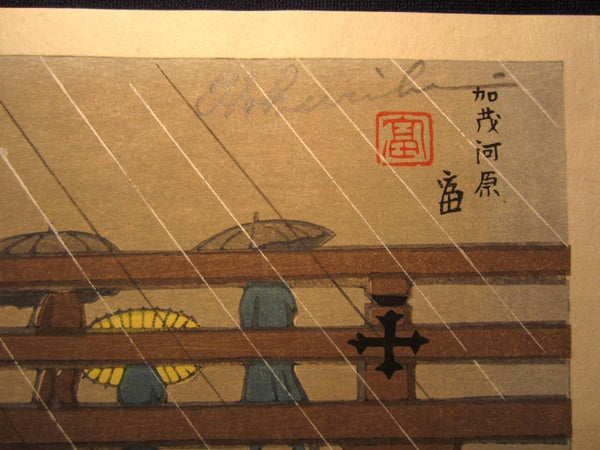 加茂河原
富
富